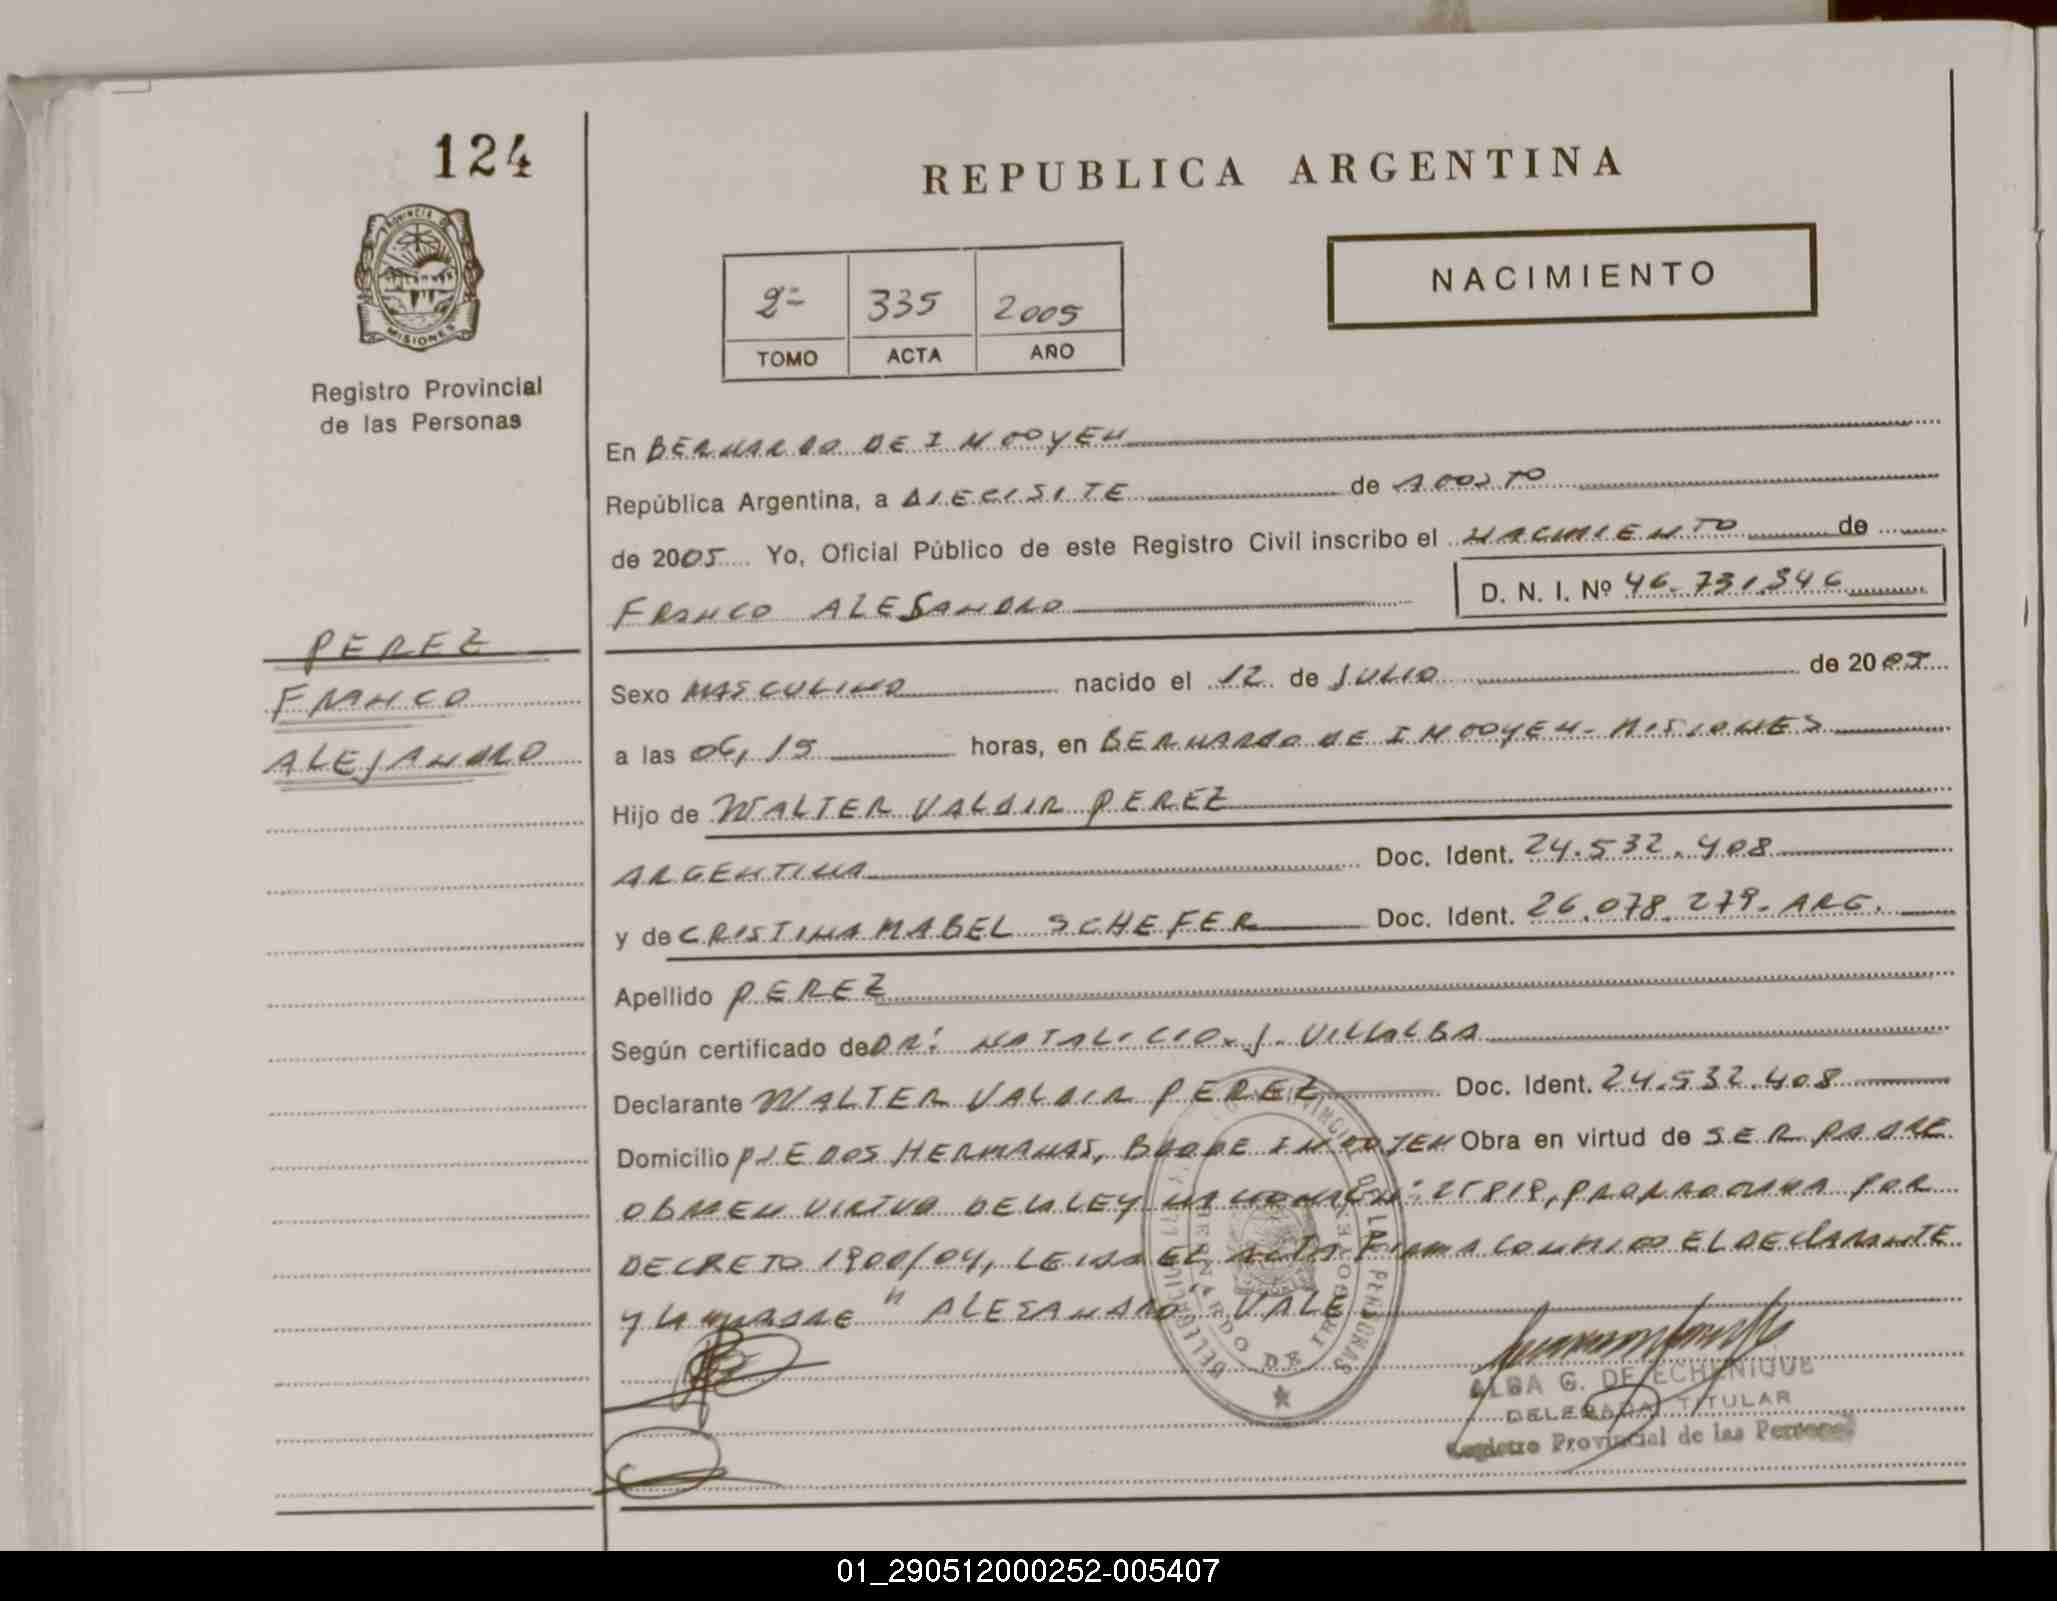 124
REPUBLICA ARGENTINA
PROVINCIA DE MISIONES
Registro Provincial
de las Personas
NACIMIENTO
2º 335 2005
TOMO ACTA AÑO
En BERNARDO DE IRIGOYEN
República Argentina, a DIECISITE de AGOSTO
de 2005 Yo, Oficial Público de este Registro Civil inscribo el NACIMIENTO de
FRANCO ALESANDRO D. N. I. Nº 46.731.346
PEREZ
FRANCO
ALEJANDRO
Sexo MASCULINO nacido el 12 de JULIO de 2005
a las 06,15 horas, en BERNARDO DE IRIGOYEN - MISIONES
Hijo de WALTER VALDIR PEREZ
ARGENTINA Doc. Ident. 24.532.408
y de CRISTINA MABEL SCHEFER Doc. Ident. 26.078.279. ARG.
Apellido PEREZ
Según certificado de DR: NATALICIO. J. VILLALBA
Declarante WALTER VALDIR PEREZ Doc. Ident. 24.532.408
Domicilio PJE DOS HERMANAS, BDO DE IRIGOYEN Obra en virtud de SER PADRE
OBRA EN VIRTUD DE LA LEY NACIONAL Nº: 25819, PRORROGADA POR
DECRETO 1900/04, LEIDA EL ACTA FIRMA CONMIGO EL DECLARANTE
Y LA MADRE " ALESANDRO" VALE
DELEGACION BERNARDO DE IRIGOYEN
ALBA G. DE ECHENIQUE
DELEGADA TITULAR
Registro Provincial de las Personas
01_290512000252-005407